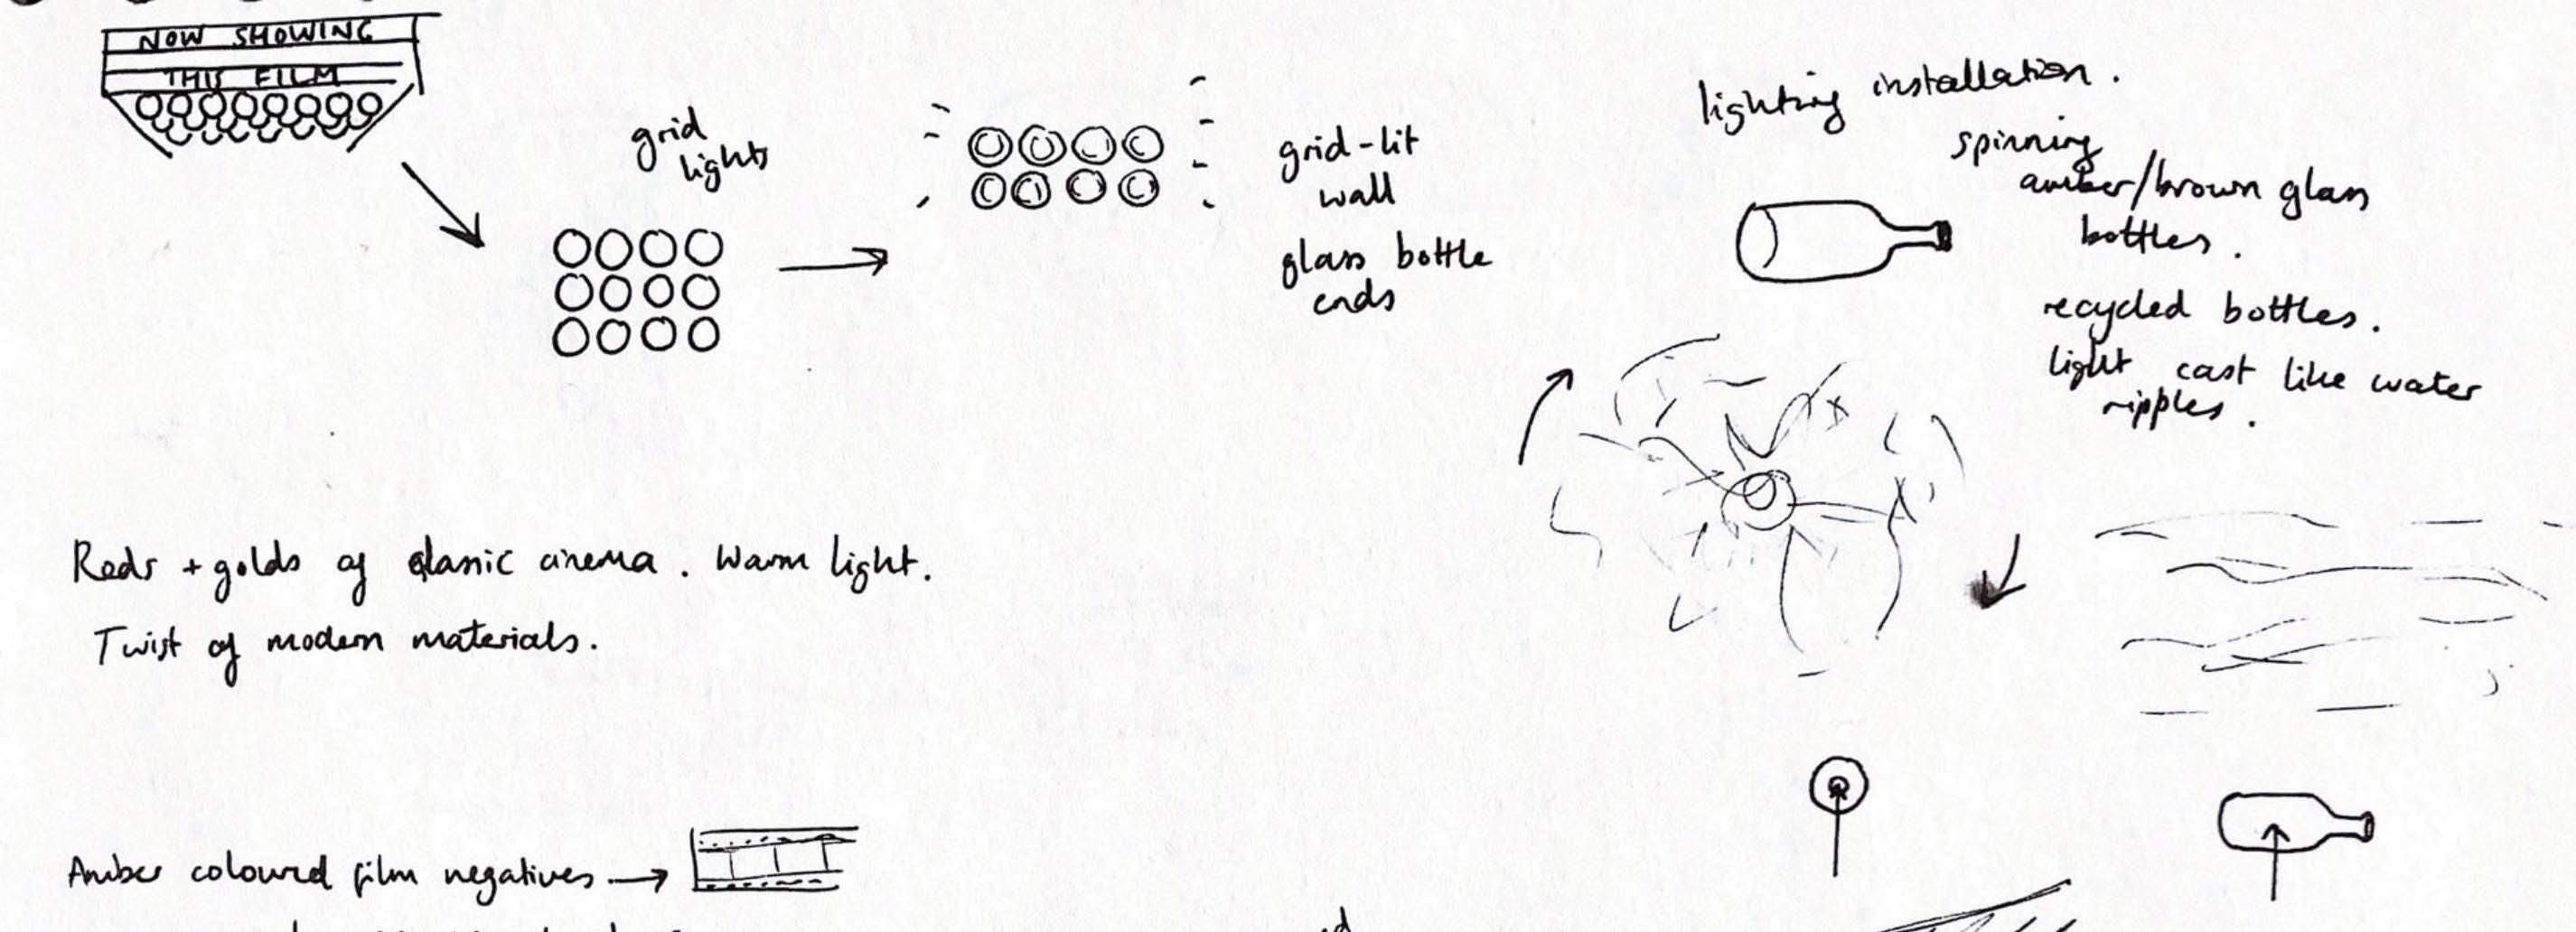 NOW SHOWING
THIS FILM
grid
lights
grid-lit
wall
glass bottle
ends
lighting installation.
spinning
amber/brown glass
bottles.
recycled bottles.
light cast like water
ripples.
Reds + golds of classic cinema. Warm light.
Twist of modern materials.
Amber coloured film negatives